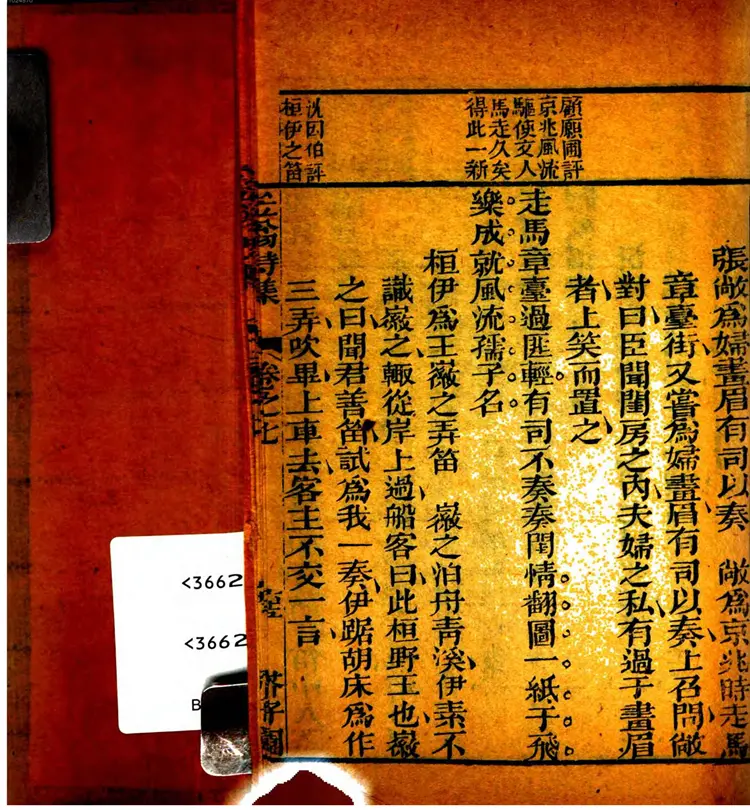 顧願圃評
京兆風流
驅使文人
馬走久矣
得此一新
沈因伯評
桓伊之笛
張敞爲婦畫眉有司以奏　敞爲京兆時走馬
章臺街又嘗爲婦畫眉有司以奏上召問敞
對曰臣聞閨房之內夫婦之私有過于畫眉
者上笑而置之
走馬章臺過匪輕有司不奏奏閨情翻圖一紙于飛
樂成就風流孺子名
桓伊爲王徽之弄笛　徽之泊舟青溪伊素不
識徽之輙從岸上過船客曰此桓野王也徽
之曰聞君善笛試爲我一奏伊踞胡床爲作
三弄吹畢上車去客主不交一言
詩集　卷之七　芥子園
<3662
<3662
B